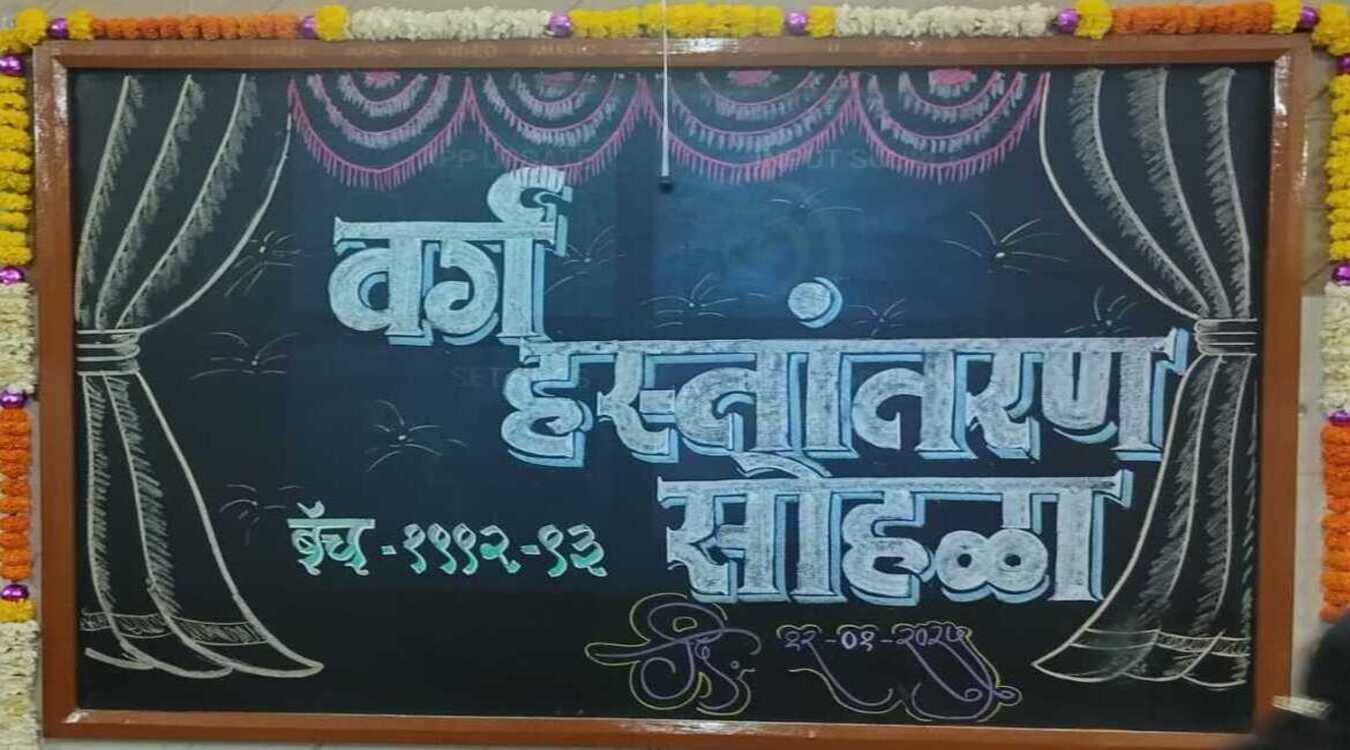 वर्ग
हस्तांतरण
सोहळा
बॅच - १९९२-९३
दि. १२-०१-२०२५